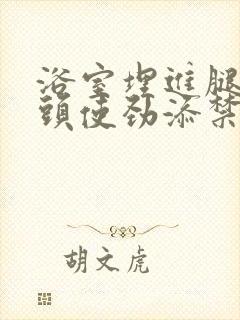 浴室埋進腿
頭使劲添禁
胡文虎